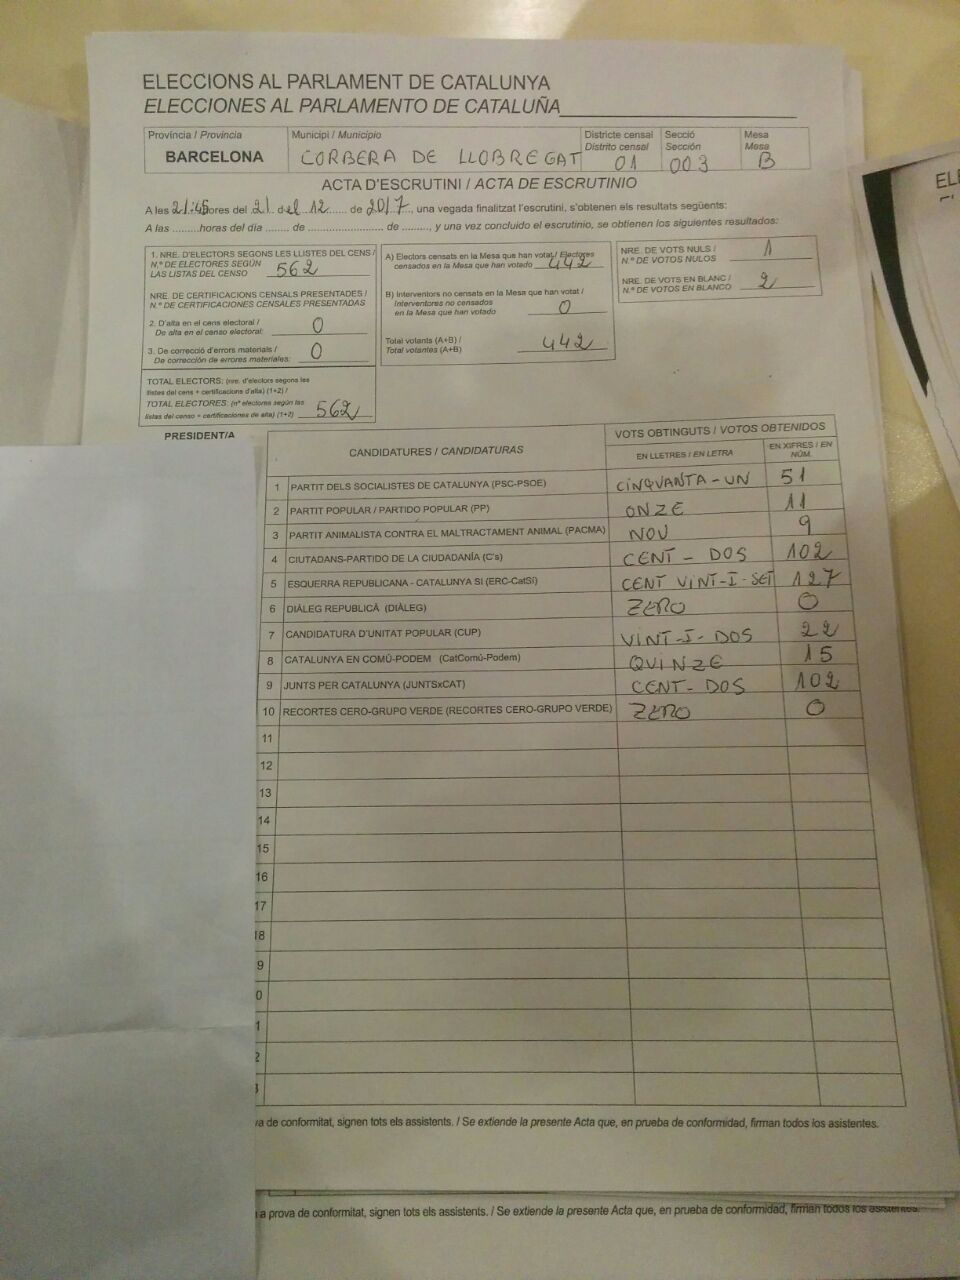 ELECCIONS AL PARLAMENT DE CATALUNYA
ELECCIONES AL PARLAMENTO DE CATALUÑA
Província / Provincia
BARCELONA
Municipi / Municipio
CORBERA DE LLOBREGAT
Districte censal
Distrito censal
01
Secció
Sección
003
Mesa
Mesa
B
ACTA D'ESCRUTINI / ACTA DE ESCRUTINIO
A les 21:45 hores del 21 del 12 de 2017, una vegada finalitzat l'escrutini, s'obtenen els resultats següents:
A las .........horas del día ........ de ......................... de ........., y una vez concluido el escrutinio, se obtienen los siguientes resultados:
1. NRE. D'ELECTORS SEGONS LES LLISTES DEL CENS /
N.º DE ELECTORES SEGÚN
LAS LISTAS DEL CENSO 562
NRE. DE CERTIFICACIONS CENSALS PRESENTADES /
N.º DE CERTIFICACIONES CENSALES PRESENTADAS
2. D'alta en el cens electoral /
De alta en el censo electoral: 0
3. De correcció d'errors materials /
De corrección de errores materiales: 0
TOTAL ELECTORS: (nre. d'electors segons les
llistes del cens + certificacions d'alta) (1+2) /
TOTAL ELECTORES: (nº electores según las
listas del censo + certificaciones de alta) (1+2) 562
A) Electors censats en la Mesa que han votat / Electores
censados en la Mesa que han votado 442
B) Interventors no censats en la Mesa que han votat /
Interventores no censados
en la Mesa que han votado 0
Total votants (A+B) /
Total votantes (A+B) 442
NRE. DE VOTS NULS /
N.º DE VOTOS NULOS 1
NRE. DE VOTS EN BLANC /
N.º DE VOTOS EN BLANCO 2
PRESIDENT/A
CANDIDATURES / CANDIDATURAS
VOTS OBTINGUTS / VOTOS OBTENIDOS
EN LLETRES / EN LETRA
EN XIFRES / EN NÚM.
1 PARTIT DELS SOCIALISTES DE CATALUNYA (PSC-PSOE) CINQUANTA-UN 51
2 PARTIT POPULAR / PARTIDO POPULAR (PP) ONZE 11
3 PARTIT ANIMALISTA CONTRA EL MALTRACTAMENT ANIMAL (PACMA) NOU 9
4 CIUTADANS-PARTIDO DE LA CIUDADANÍA (C's) CENT - DOS 102
5 ESQUERRA REPUBLICANA - CATALUNYA SI (ERC-CatSí) CENT VINT-I-SET 127
6 DIÀLEG REPUBLICÀ (DIÀLEG) ZERO 0
7 CANDIDATURA D'UNITAT POPULAR (CUP) VINT-I-DOS 22
8 CATALUNYA EN COMÚ-PODEM (CatComú-Podem) QUINZE 15
9 JUNTS PER CATALUNYA (JUNTSxCAT) CENT-DOS 102
10 RECORTES CERO-GRUPO VERDE (RECORTES CERO-GRUPO VERDE) ZERO 0
11
12
13
14
15
16
17
18
9
0
1
2
3
va de conformitat, signen tots els assistents. / Se extiende la presente Acta que, en prueba de conformidad, firman todos los asistentes.
a prova de conformitat, signen tots els assistents. / Se extiende la presente Acta que, en prueba de conformidad, firman todos los asistentes.